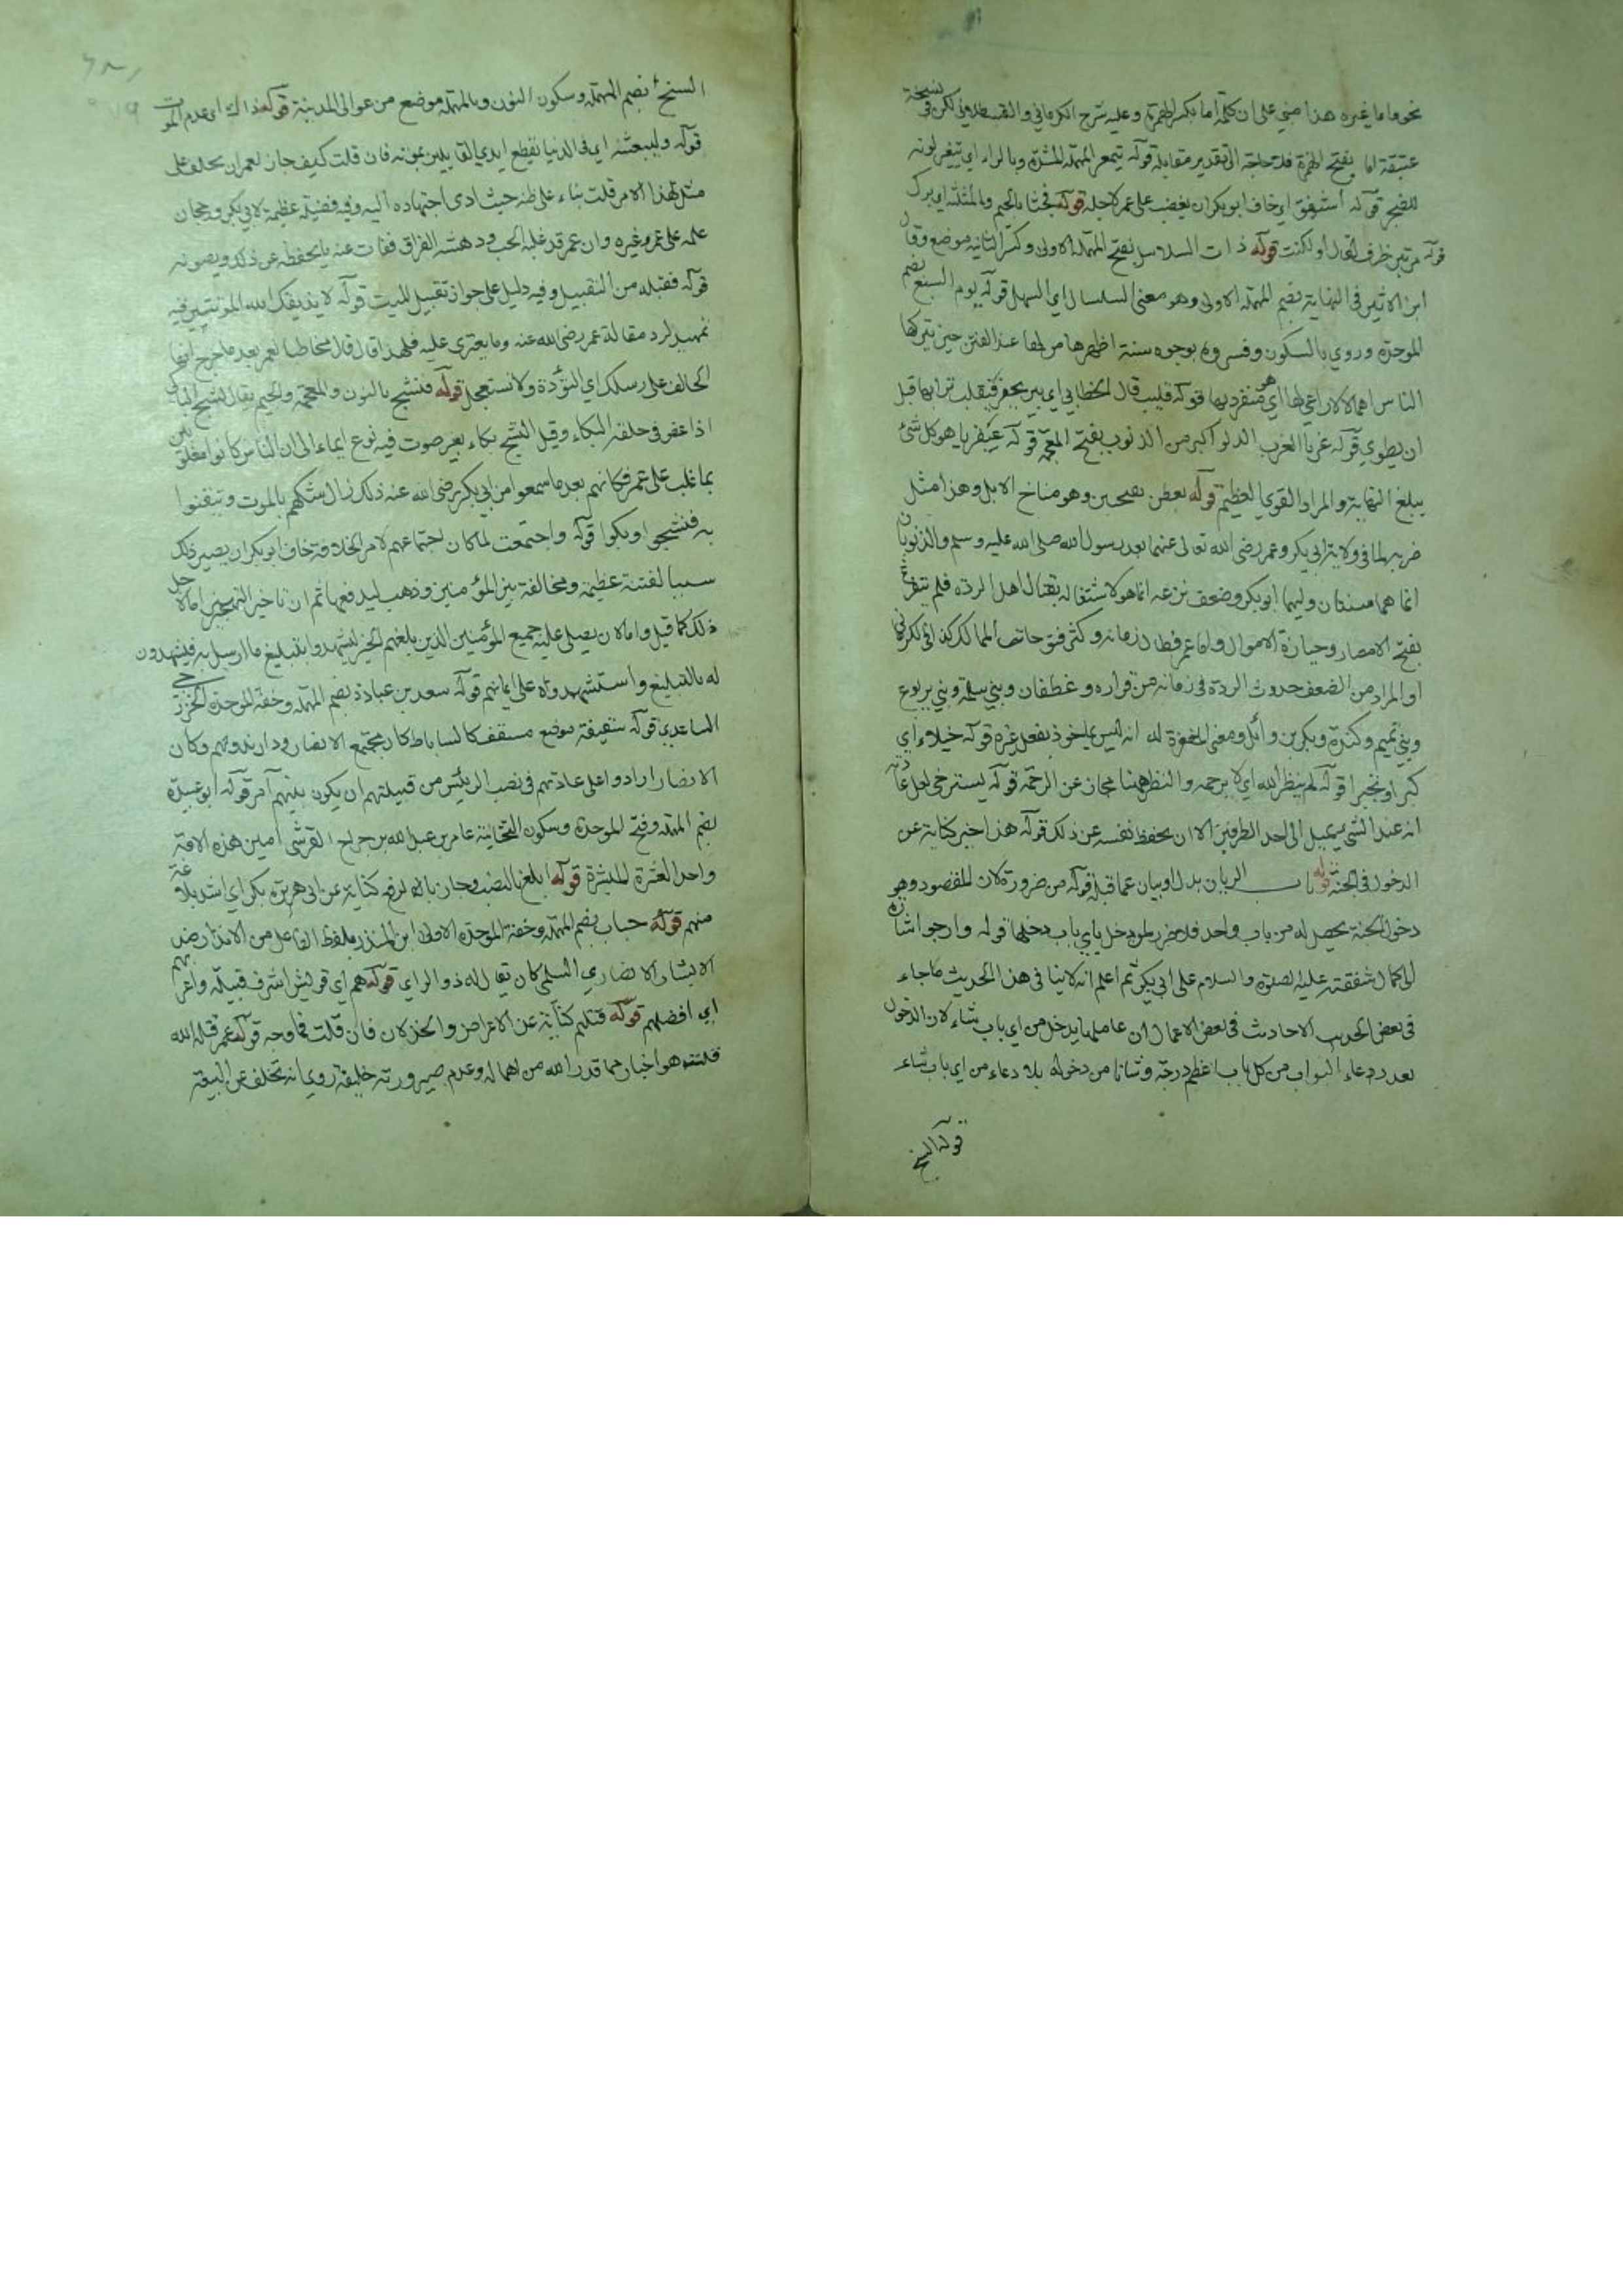 نحو واما غيره هذا مبني على ان كلمة اما بكسر الهمزة وعليه شرح الكرماني والقسطلاني لكن في نسخة
عتيقة اما بفتح الهمزة فلا حاجة الى تقدير مقابلة قوله يتمعر المهملة المشددة وبالراء اي يتغير لونه
للضجر قوله اشفق اي خاف ابو بكر ان يغضب على عمر لاجله قوله فجثا بالجيم وبالمثلثة اي برك
قوله مرتين ظرف لقال او لكنت قوله ذات السلاسل بفتح المهملة الاولى وكسر الثانية موضع وقال
ابن الاثير في النهاية بضم المهملة الاولى وهو معنى السلسال اي السهل قوله يوم السبع بضم
الموحدة وروي بالسكون وفسروه بوجوه ستة اظهرها من لها عند الفتن حين يتركها
الناس هملا لا راعي لها اي هو منفرد بها قوله قليب قال الخطابي اي بير يحفر فيقلب ترابها قبل
ان يطوي قوله غربا الغرب الدلو اكبر من الذنوب بفتح المعجمة قوله عبقريا هو كل شئ
يبلغ النهاية والمراد القوي العظيم قوله بعطن بفتحتين وهو مناخ الابل وهذا مثل
ضربه لما في ولاية ابي بكر وعمر رضي الله تعالى عنهما بعد رسول الله صلى الله عليه وسلم والذنوبان
انما هما سنتان وليهما ابو بكر وضعف نزعه انما هو لاشتغاله بقتال اهل الردة فلم يتفرغ
بفتح الامصار وحيازة الاموال واما عمر فطال زمانه وكثر فتوحاته الممالك كذا في الكرماني
او المراد من الضعف حدوث الردة في زمانه من فزاره وغطفان وبني سليم وبني يربوع
وبني تميم وكندة وبكر بن وائل ومعنى المغفرة له انه ليس بماخوذ بفعل غيره قوله خيلاء اي
كبرا وتجبرا قوله لم ينظر الله اي لا يرحمه والنظر ههنا مجاز عن الرحمة قوله يسترخي لعل عادته
انه عند المشي يميل الى احد الطرفين الا ان يحفظ نفسه عن ذلك قوله هذا خير كناية عن
الدخول في الجنة قوله باب الريان بدل او بيان عما قبله قوله من ضرورة لان المقصود وهو
دخول الجنة يحصل له من باب واحد فلا ضرر لمن دخل باي باب دخلها قوله وارجوا اشارة
لكمال شفقته عليه الصلوة والسلام على ابي بكر ثم اعلم انه لا ينافي هذا الحديث ما جاء
في بعض الحديث الاحاديث في بعض الاعمال ان عاملها يدخل من اي باب شاء لان الدخول
بعد دعاء البواب من كل باب اعظم درجة وشانا من دخوله بلا دعاء من اي باب شاء
قوله السنح
السنح بضم المهملة وسكون النون وبالمهملة موضع من عوالي المدينة قوله ذاك اي عدم الموت
قوله وليبعثنه اي في الدنيا ليقطع ايدي القايلين بموته فان قلت كيف جاز لعمر ان يحلف على
مثل هذا الامر قلت بناء على ظنه حيث ادى اجتهاده اليه وفيه فضيلة عظيمة لابي بكر ورجحان
علمه على عمر وغيره وان عمر قد غلبه الحب ودهشه الفراق ففات عنه ما يحفظه عن ذلك ويصونه
قوله فقبله من التقبيل وفيه دليل على جواز تقبيل الميت قوله لا يذيقك الله الموتتين فيه
تمهيد لرد مقالة عمر رضي الله عنه وما يعتري عليه فلهذا قال مخاطبا لعمر بعد ما خرج ايها
الحالف على رسلك اي التؤدة ولا تستعجل قوله فنشج بالنون والمعجمة والجيم يقال نشج الباكي
اذا غص في حلقه البكاء وقيل النشج بكاء بغير صوت فيه نوع ايماء الى ان الناس كانوا مغلوبين
بما غلب على عمر فكانهم بعد ما سمعوا من ابي بكر رضي الله عنه ذلك زال شكهم بالموت وتيقنوا
به فنشجوا وبكوا قوله واجتمعت لما كان اجتماعهم لامر الخلافة خاف ابو بكر ان يصير ذلك
سببا لفتنة عظيمة ومخالفة بين المؤمنين وذهب ليدفعها ثم ان تاخير التجهيز اما لاجل
ذلك كما قيل واما لان يصلي عليه جميع المؤمنين الذين بلغهم الخبر ليشهدوا بتبليغ ما ارسل به فيشهدون
له بالتبليغ واستشهدوه على ايمانهم قوله سعد بن عبادة بضم المهملة وخفة الموحدة الخزرجي
الساعدي قوله سقيفة موضع مسقف كالساباط كان مجتمع الانصار ودار ندوتهم وكان
الانصار ارادوا على عادتهم في نصب الرئيس من قبيلتهم ان يكون بينهم آمر قوله ابو عبيدة
بضم المهملة وفتح الموحدة وسكون التحتانية عامر بن عبد الله بن جراح القرشي امين هذه الامة
واحد العشرة المبشرة قوله ابلغ بالنصب وجاز بالرفع كناية عن ابي بكر اي اشد بلاغة
منهم قوله حباب بضم المهملة وخفة الموحدة الاولى ابن المنذر بلفظ الفاعل من الانذار ضد
الابشار الانصاري السلمي كان يقال له ذو الراي قوله هم اي قريش اشرف قبيلة واعربهم
اي افضلهم قوله قتلتم كناية عن الاعراض والخذلان فان قلت فما وجه قول عمر قتله الله
قلت هو اخبار عما قدر الله من اهماله وعدم صيرورته خليفة روي انه تخلف عن البيعة